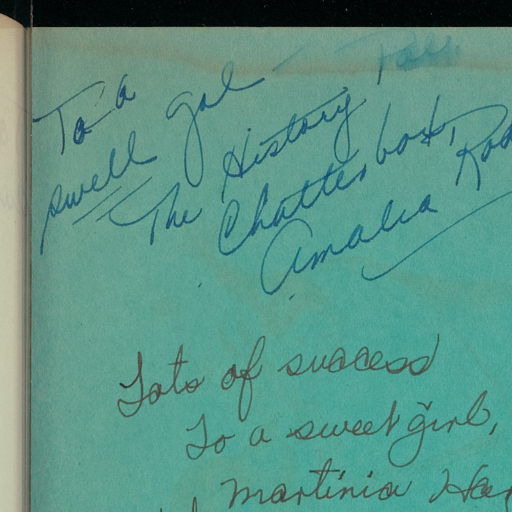 To a
swell gal
The History
Chatterbox,
Amalia
Lots of success
To a sweet girl,
Martinia